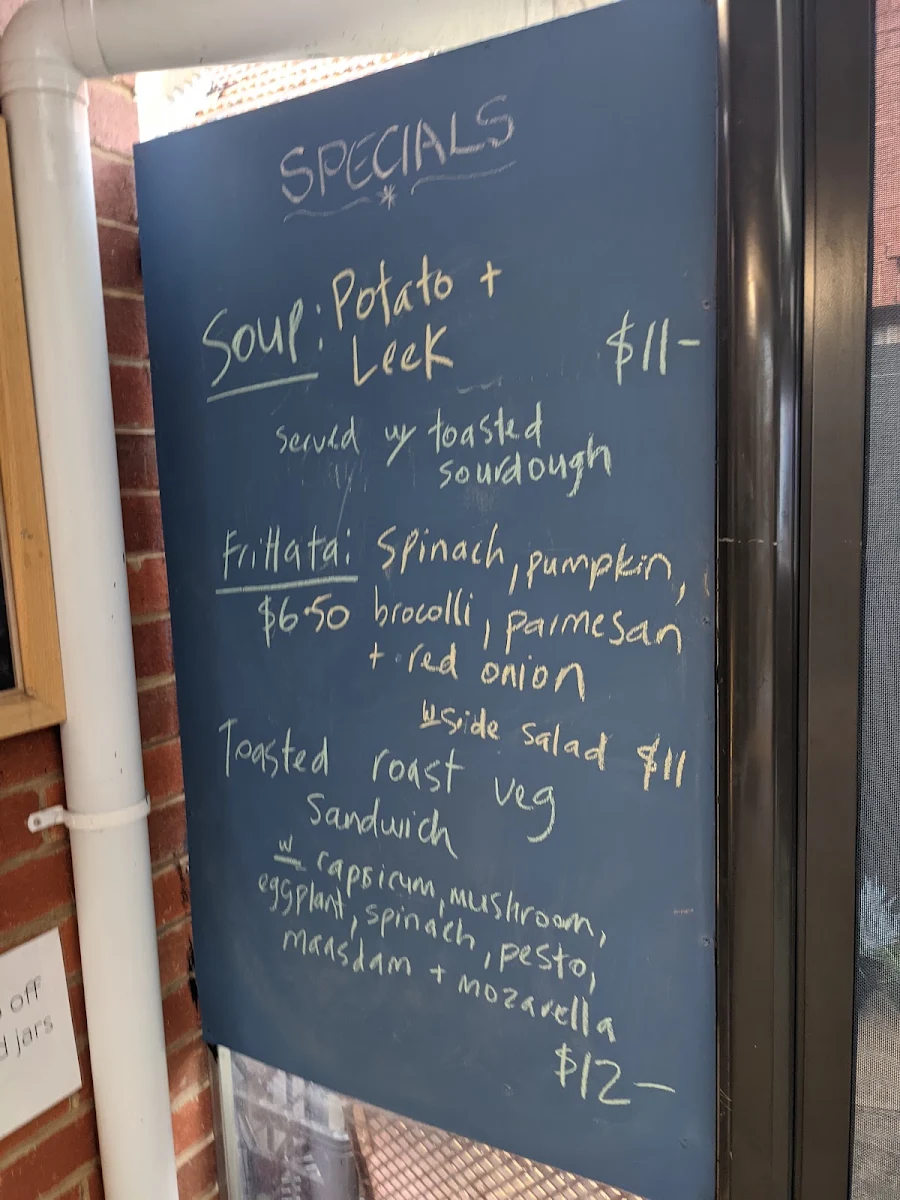 SPECIALS
Soup: Potato +
Leek $11-
served w/ toasted
sourdough
Frittata: Spinach, pumpkin,
$6.50 brocolli, parmesan
+ red onion
w side salad $11
Toasted roast veg
Sandwich
w capsicum, mushroom,
eggplant, spinach, pesto,
maasdam + mozarella
$12-
off
jars